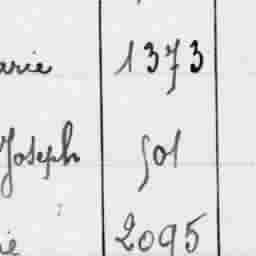 arie 1373
Joseph 501
ie 2095